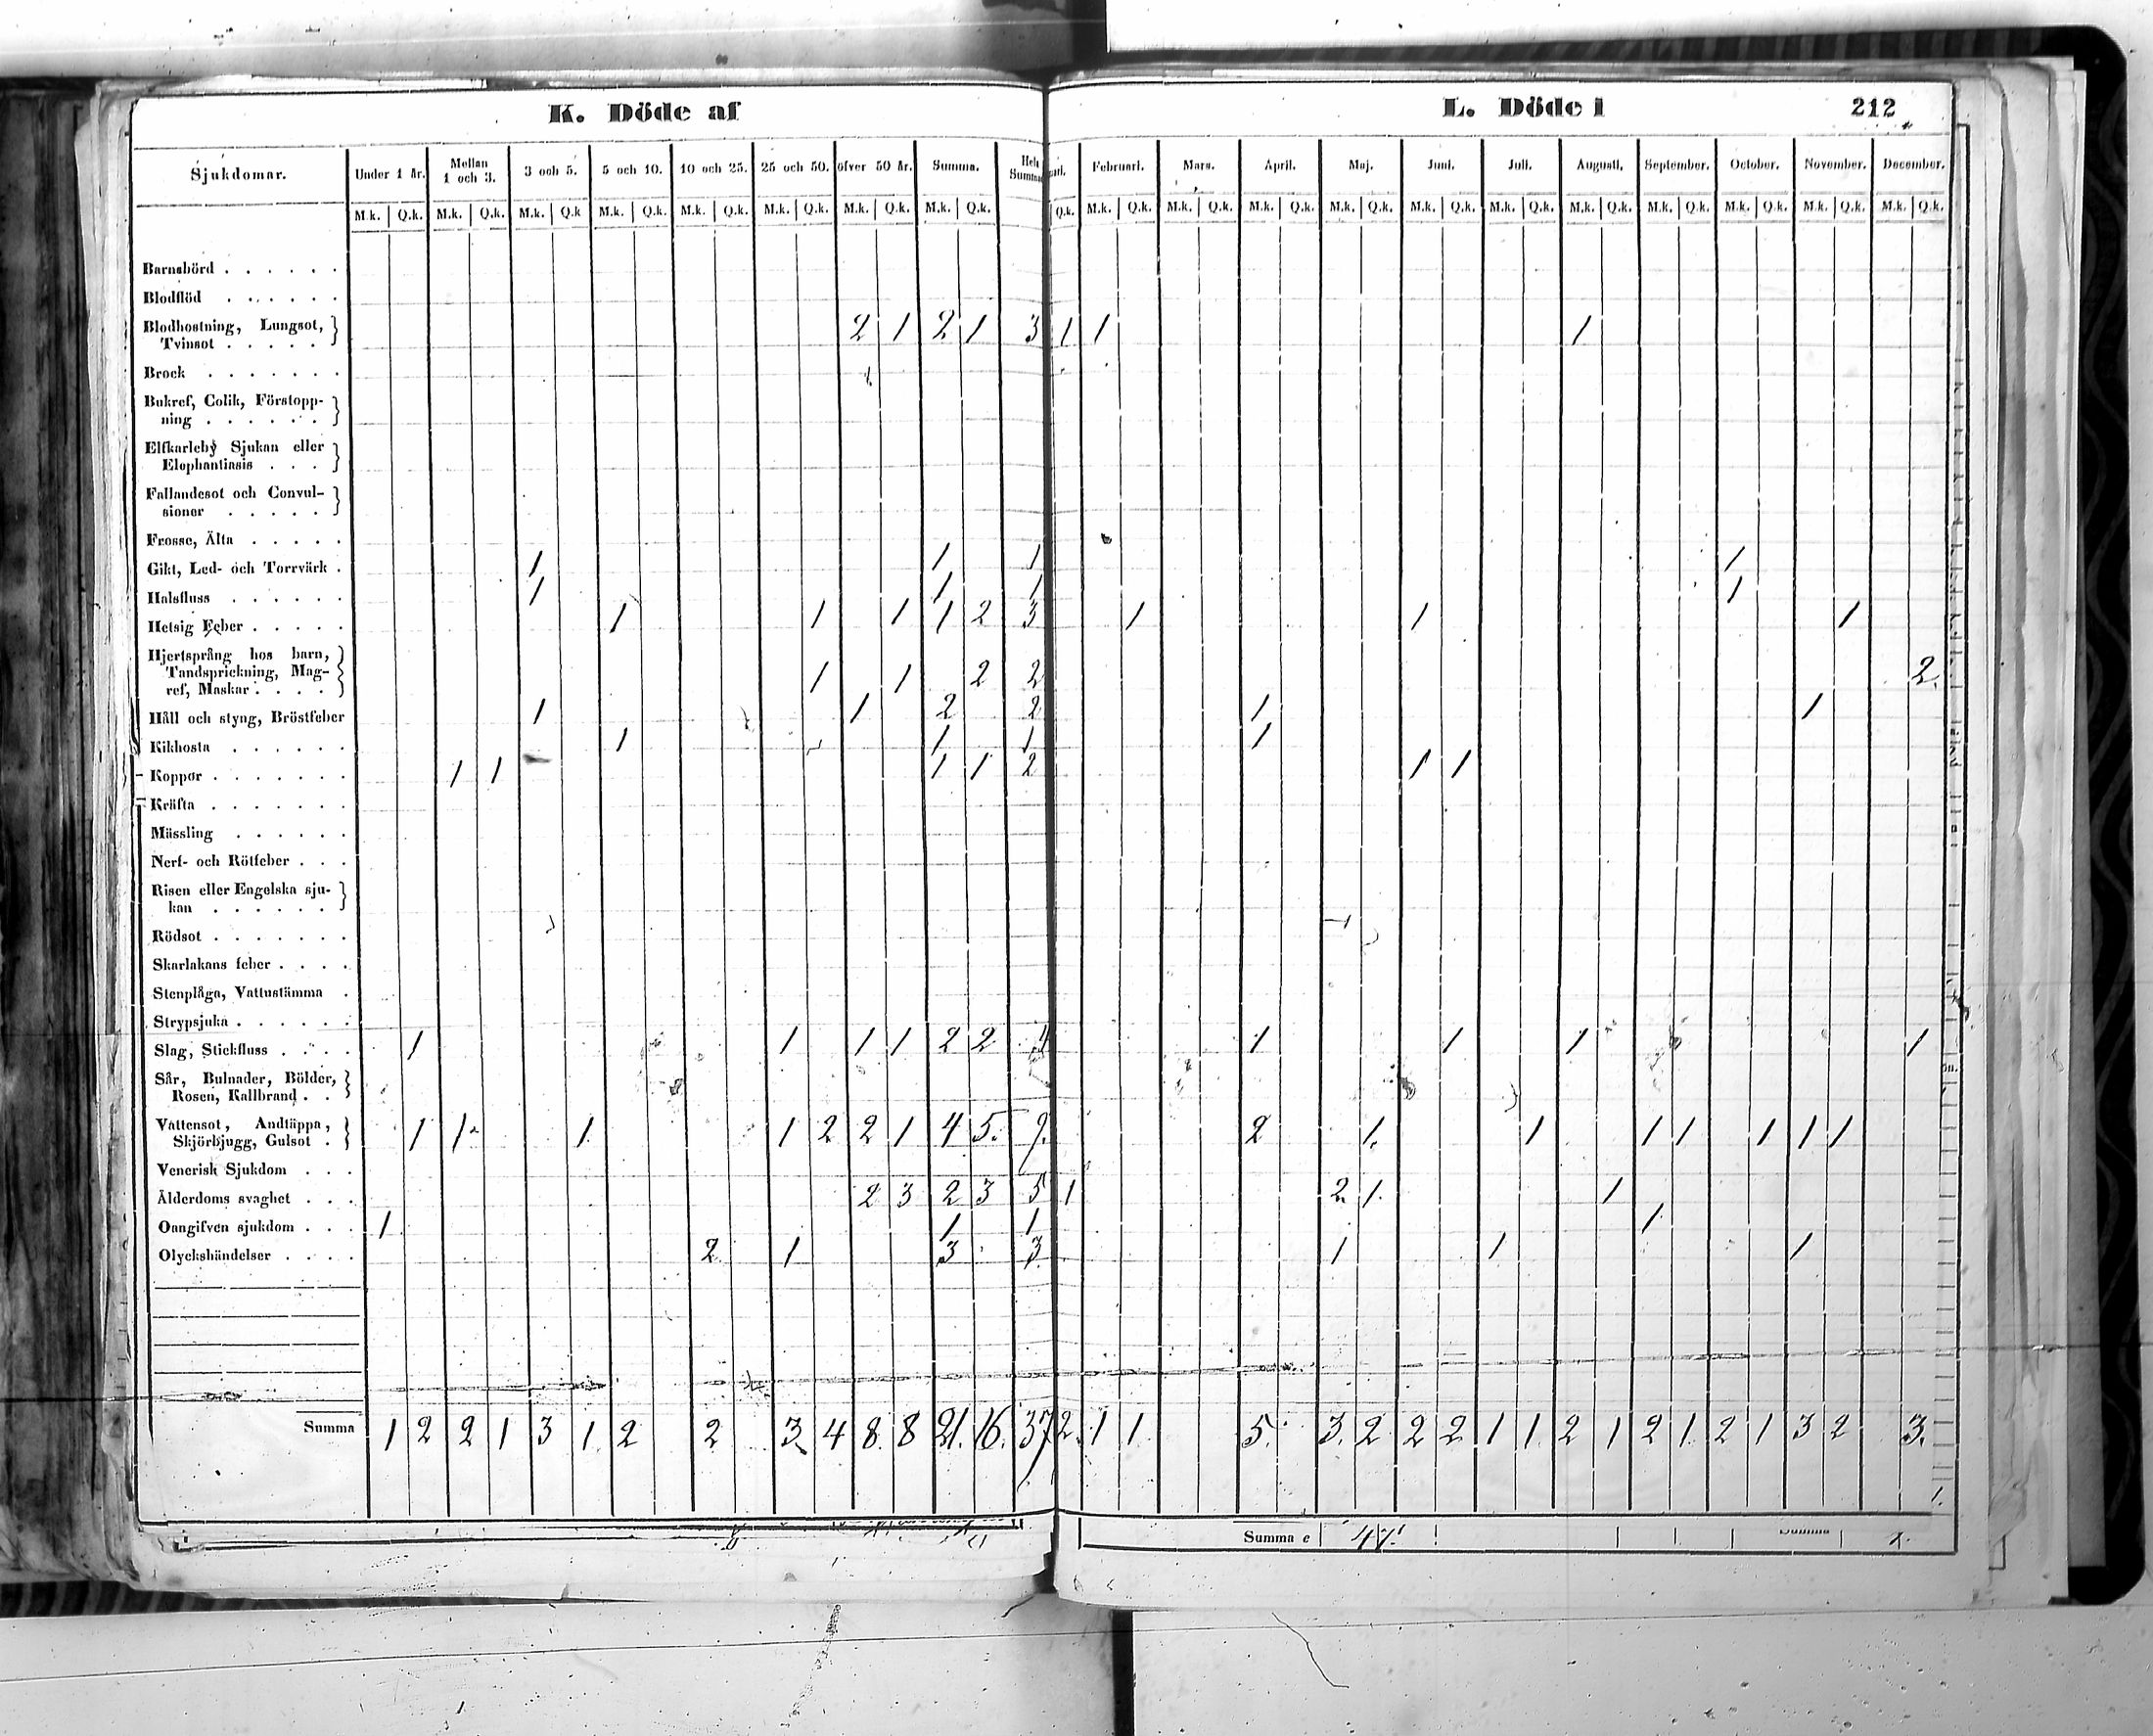 K. Döde af
L. Döde i 212
Sjukdomar. Under 1 år. Mellan 1 och 3. 3 och 5. 5 och 10. 10 och 25. 25 och 50. öfver 50 år. Summa. Hela Summa Februari. Mars. April. Maj. Juni. Juli. Augusti. September. October. November. December.
M.k. Q.k. M.k. Q.k. M.k. Q.k M.k. Q.k. M.k. Q.k. M.k. Q.k. M.k. Q.k. M.k. Q.k. Q.k. M.k. Q.k. M.k. Q.k. M.k. Q.k. M.k. Q.k. M.k. Q.k. M.k. Q.k. M.k. Q.k. M.k. Q.k. M.k. Q.k. M.k. Q.k. M.k. Q.k.
Barnsbörd . . . . . .
Blodflöd . . . . . .
Blodhostning, Lungsot,
Tvinsot . . . . . 2 1 2 1 3 1 1 1
Brock . . . . . . .
Bukref, Colik, Förstopp-
ning . . . . . .
Elfkarleby Sjukan eller
Elephantiasis . . .
Fallandesot och Convul-
sioner . . . . .
Frosse, Älta . . . . .
Gikt, Led- och Torrvärk . 1 1 1 1
Halsfluss . . . . . . 1 1 1 1
Hetsig Feber . . . . . 1 1 1 1 2 3 1 1 1
Hjertsprång hos barn,
Tandsprickning, Mag-
ref, Maskar . . . . 1 1 2 2 2.
Håll och styng, Bröstfeber 1 1 2 2 1 1
Kikhosta . . . . . . 1 1 1 1
Koppor . . . . . . . 1 1 1 1 2 1 1
Kräfta . . . . . . .
Mässling . . . . . .
Nerf- och Rötfeber . . .
Risen eller Engelska sju-
kan . . . . . .
Rödsot . . . . . . .
Skarlakans feber . . . .
Stenplåga, Vattustämma .
Strypsjuka . . . . . .
Slag, Stickfluss . . . . 1 1 1 1 2 2 4 1 1 1 1
Sår, Bulnader, Bölder,
Rosen, Kallbrand . .
Vattensot, Andtäppa,
Skjörbjugg, Gulsot . 1 1 1 1 2 2 1 4 5. 9. 2 1. 1 1 1 1 1 1
Venerisk Sjukdom . . .
Ålderdoms svaghet . . . 2 3 2 3 5 1 2. 1. 1
Oangifven sjukdom . . . 1 1 1 1.
Olyckshändelser . . . . 2 1 3 3 1 1 1
Summa 1 2 2 1 3 1. 2 2 3 4 8. 8 21. 16. 37 2. 1 1 5. 3. 2 2 2 1 1 2 1 2 1. 2 1 3 2 3.
Summa e 47.